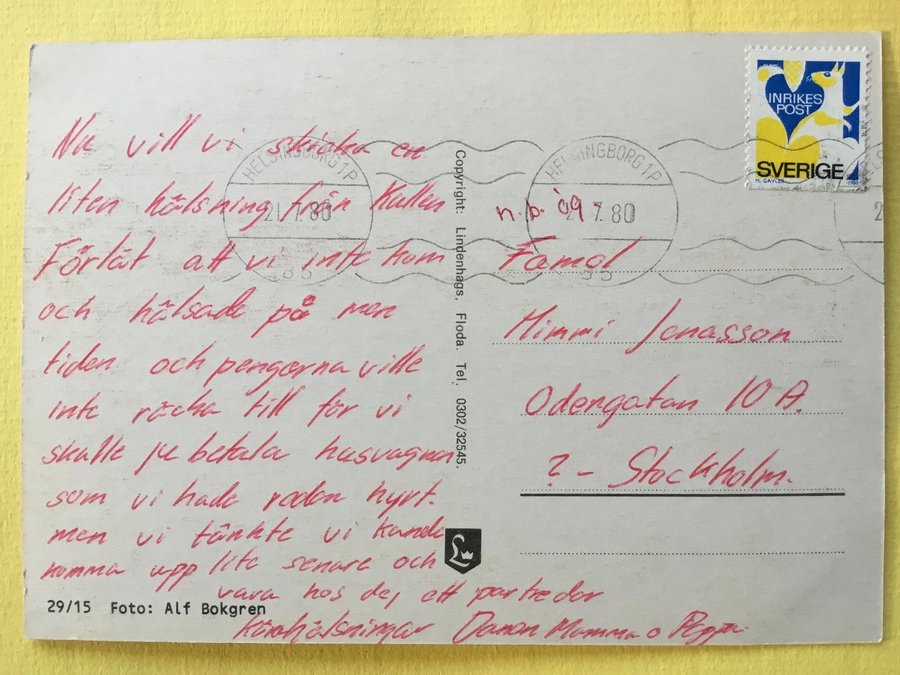 Nu vill vi skicka en
liten hälsning från Kullen
Förlåt att vi inte kom
och hälsade på men
tiden och pengarna ville
inte räcka till för vi
skulle ju betala husvagnen
som vi hade redan hyrt.
men vi tänkte vi kunde
komma upp lite senare och
vara hos dej ett par
Danen Mamma o
29/15 Foto: Alf Bokgren
Copyright: Lindenhags, Floda. Tel. 0302/32545.
HELSINGBORG 1 P
21.7.80
HELSINGBORG 1 P
21.7.80
INRIKES
POST
SVERIGE
Famol
Mimmi Jonasson
Odengatan 10 A.
? - Stockholm.